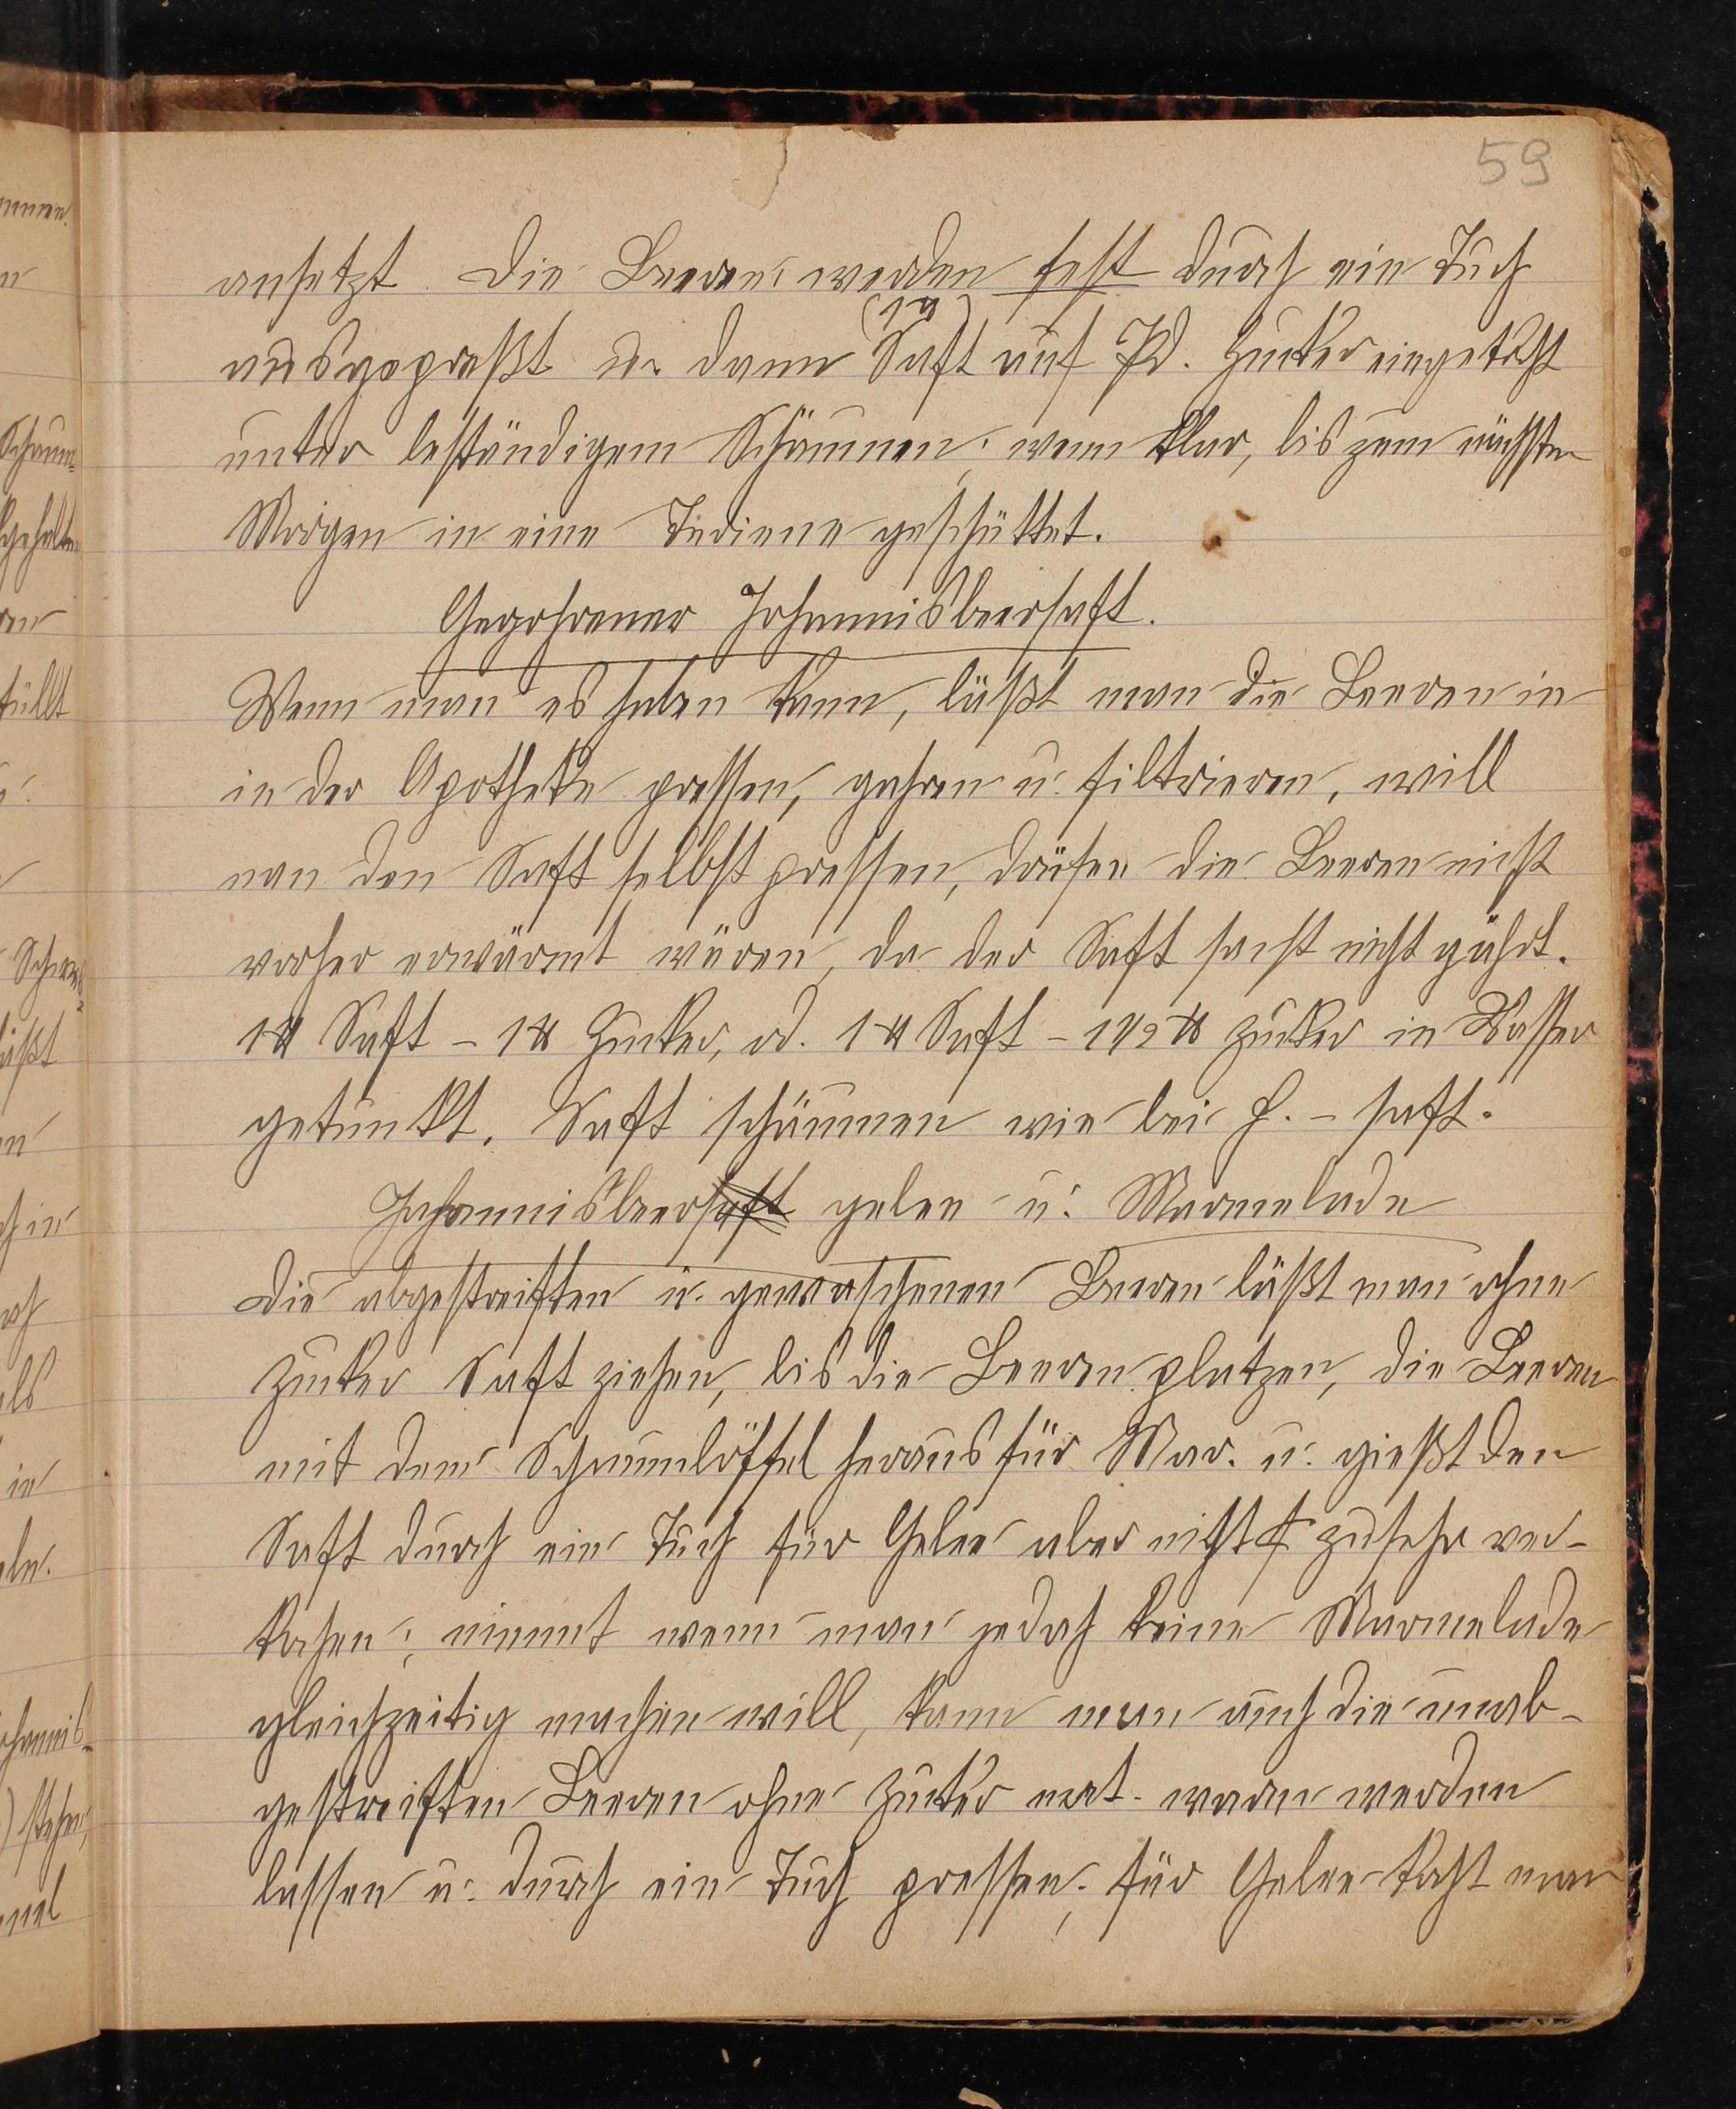 59
ansetzt. Die Beeren werden fest durch ein Tuch
(1 ℔)
ausgepreßt u. dann Saft auf Pd. Zucker eingekocht
unter beständigem Schäumen; wenn klar, bis zum nächsten
Morgen in eine Teriene geschüttet.
Gegohrener Johannisbeersaft.
Wenn man es haben kann, läßt man die Beeren in
in der Apotheke pressen, gähren u. filtrieren, will
man den Saft selbst pressen, dürfen die Beeren nicht
vorher erwärmt wären, da der Saft sonst nicht gährt.
1 ℔ Saft – 1 ℔ Zucker, od. 1 ℔ Saft – 1 1/2 ℔ Zucker in Wasser
getunkt. Saft schäumen wie bei H. – saft.
Johannisbeersaft gelee u. Marmelade
Die abgestreiften u. gewaschenen Beeren läßt man ohne
Zucker Saft ziehen, bis die Beeren platzen, die Beeren
mit dem Schaumlöffel heraus für Mar. u. gießt den
Saft durch ein Tuch für Gelee aber nicht zusehr ver-
kochen; nimmt wenn man jedoch keine Marmelade
gleichzeitig machen will, kann man auch die unab-
gestreiften Beeren ohne Zucker warm werden
lassen u. durch ein Tuch pressen; für Gelee kocht man